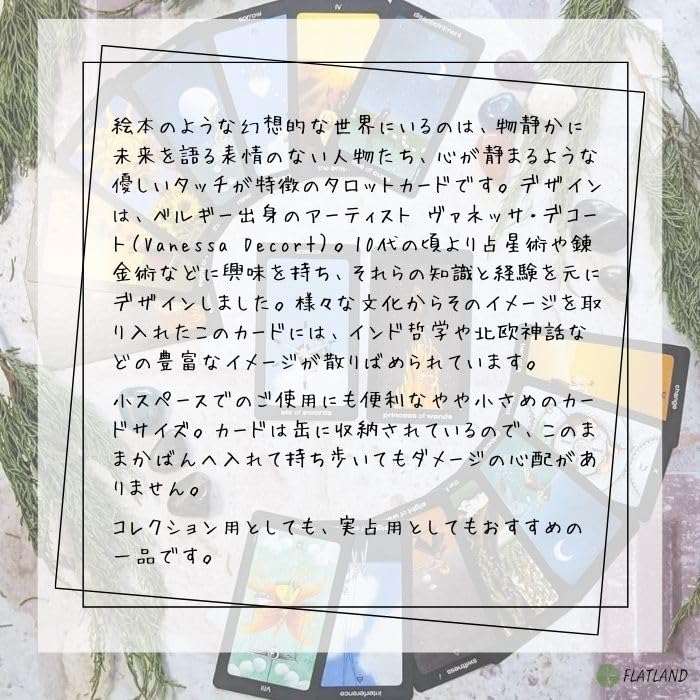 sorrow
IV
disappointment
絵本のような幻想的な世界にいるのは、物静かに
未来を語る表情のない人物たち、心が静まるような
優しいタッチが特徴のタロットカードです。デザイン
は、ベルギー出身のアーティスト ヴァネッサ・デコー
ト(Vanessa Decort)。10代の頃より占星術や錬
金術などに興味を持ち、それらの知識と経験を元に
デザインしました。様々な文化からそのイメージを取
り入れたこのカードには、インド哲学や北欧神話な
どの豊富なイメージが散りばめられています。
six of swords
princess of wands
change
小スペースでのご使用にも便利なやや小さめのカー
ドサイズ。カードは缶に収納されているので、このま
まかばんへ入れて持ち歩いてもダメージの心配があ
りません。
コレクション用としても、実占用としてもおすすめの
一品です。
eight of wands
swiftness
interference
VIII
FLATLAND